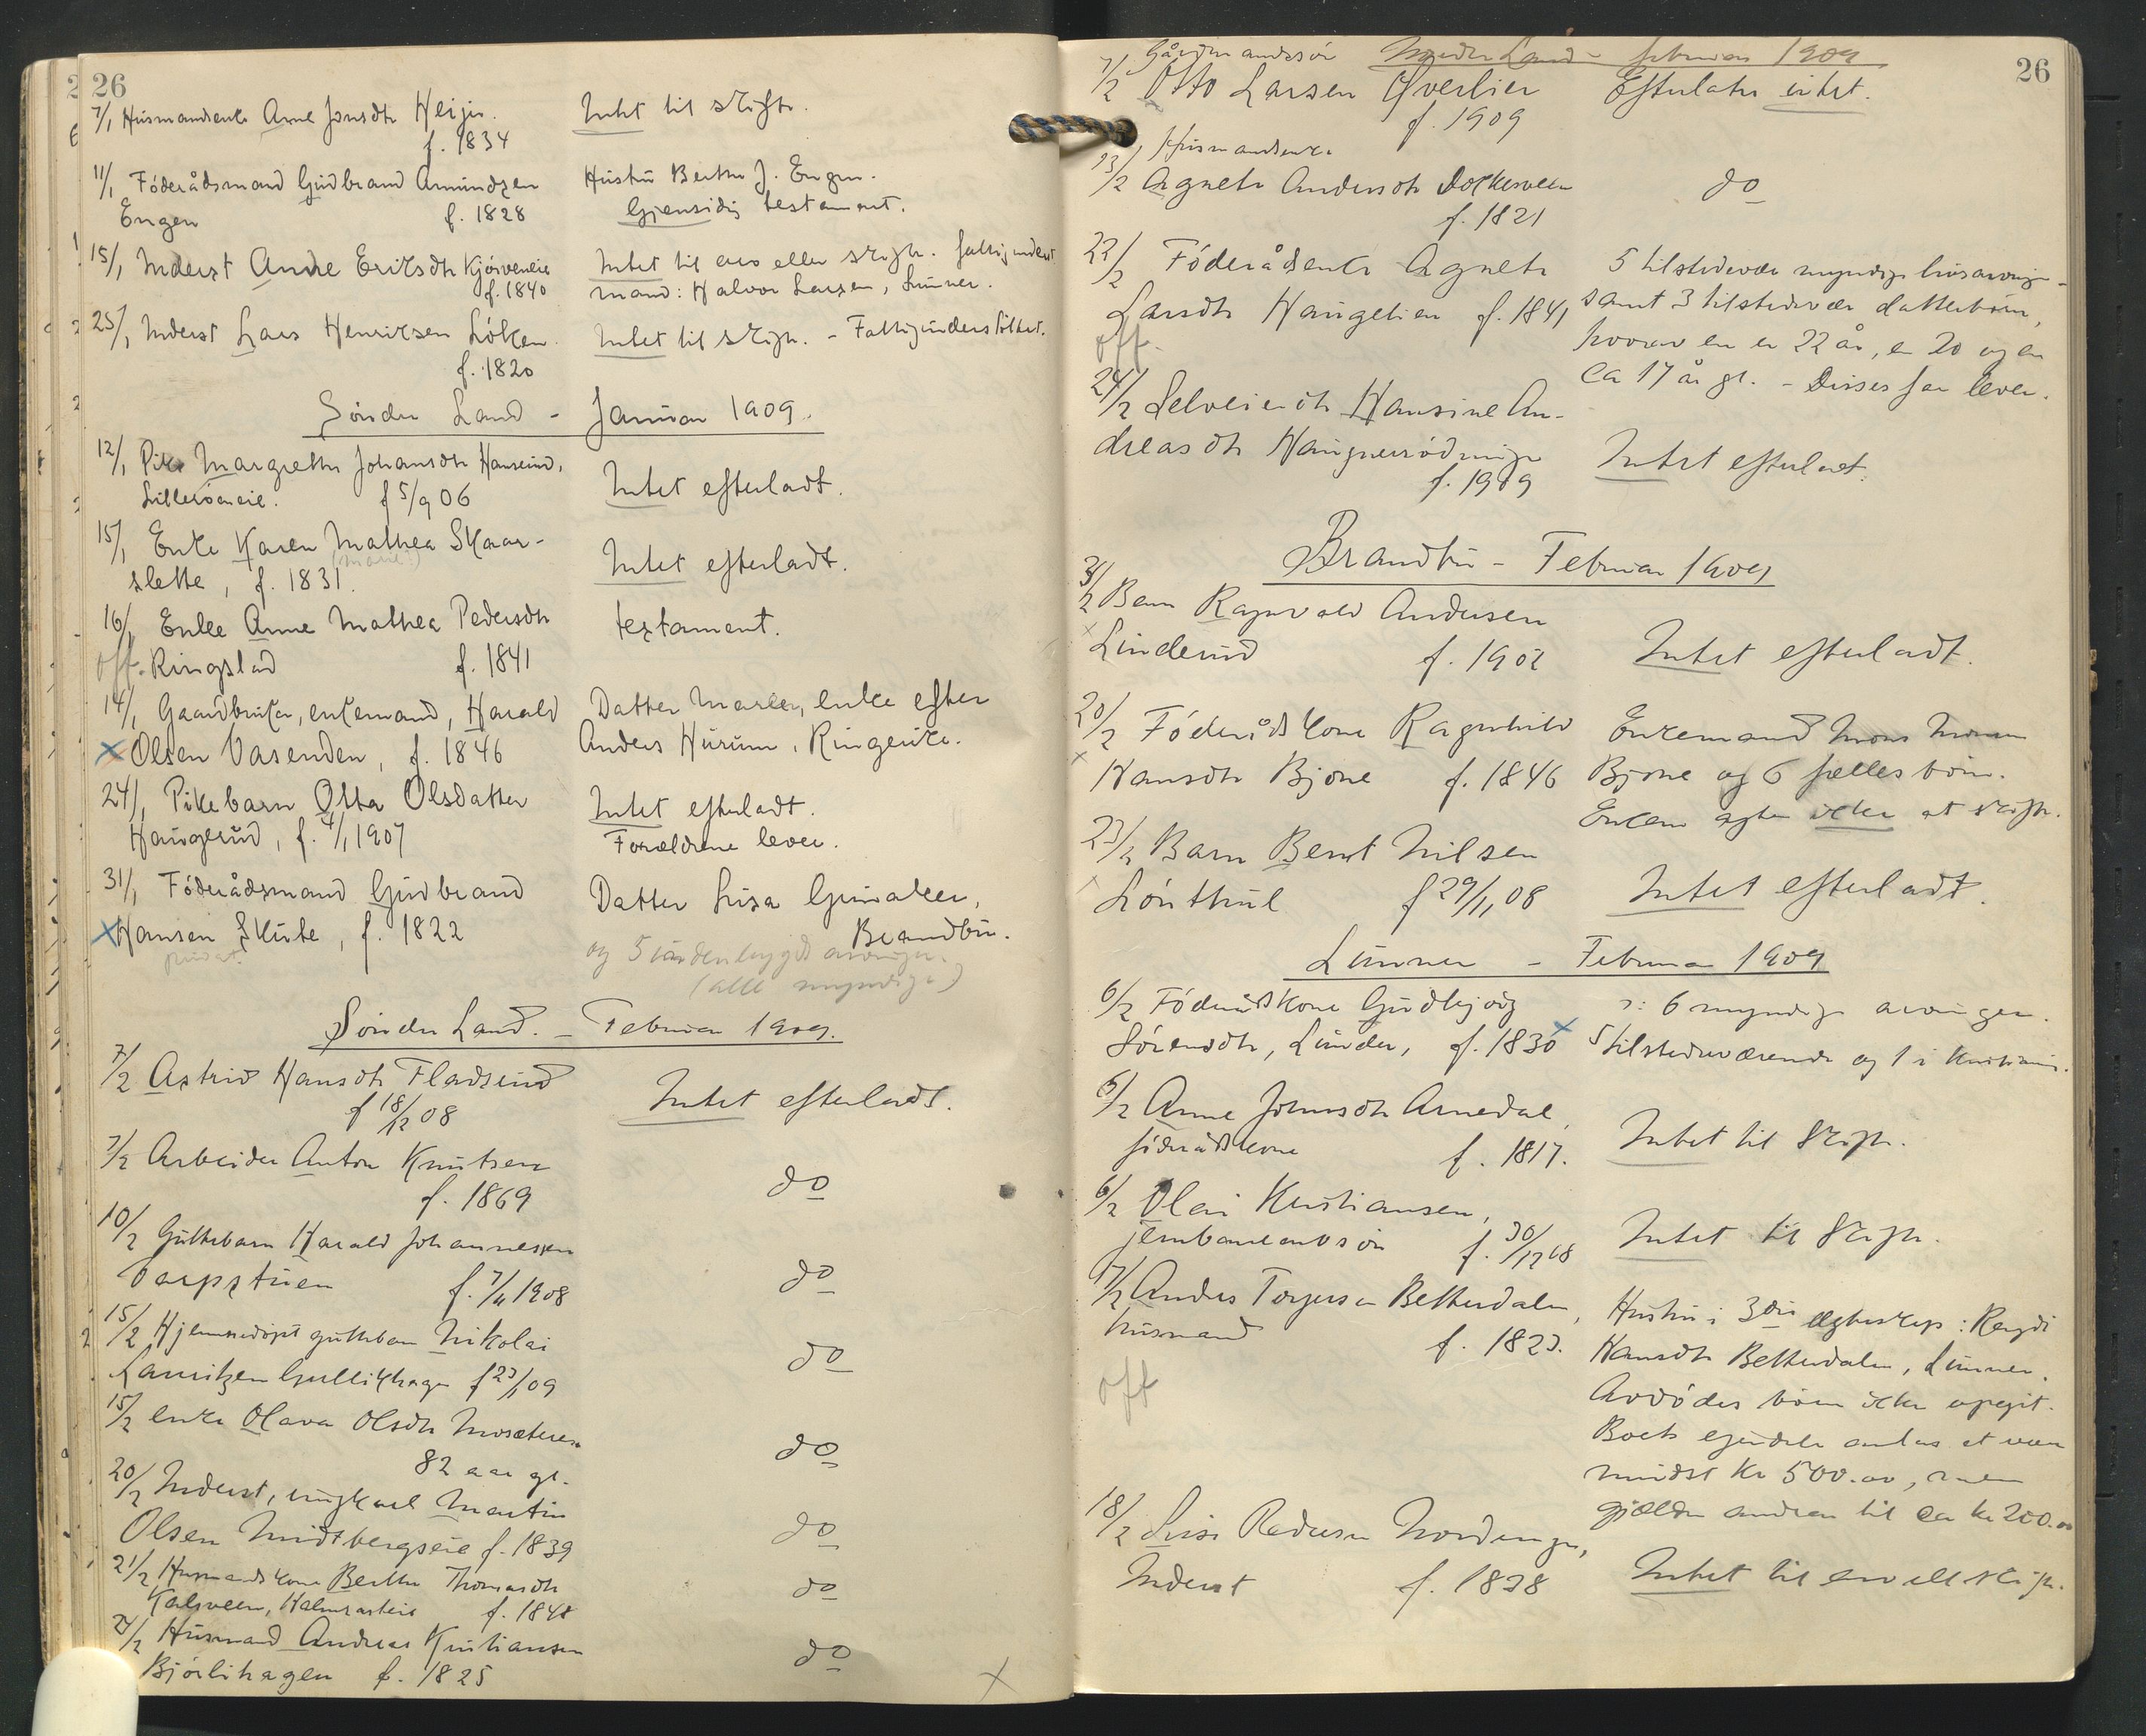 26
7/1 Husmandsenke Anne Jonsdtr Heijer. Intet til skifte.
f. 1834
11/1 Föderådsmand Gudbrand Amundsen Hustru Berthe J. Engen.
Engen f. 1828 Gjensidig testament.
15/1 Inderst Anne Eriksdtr Kjösveneie Intet til arv eller skifte. fattigunderst
f. 1840 mand: Halvor Larsen, Lunner.
25/1 Inderst Lars Henriksen Löken. Intet til skifte. - Fattigunderstöttet.
f. 1820
Söndre Land - Januar 1909.
12/1 Pike Margrethe Johansdtr Hanserud,
Lilleröeneie. f 5/9 06 Intet efterladt.
15/1 Enke Karen Mathea Skaar-
slette, f. 1831. Intet efterladt.
16/1 Enke Anne Mathea Pedersdtr testament.
off. Ringslad f. 1841
14/1 Gaardbruker, enkemand, Harald Datter Maren, enke efter
x Olsen Vasenden, f. 1846 Anders Hurum, Ringerike.
24/1 Pikebarn Otta Olsdatter Intet efterladt.
Haugerud, f. 4/1 1907 Forældrene lever.
31/1 Föderådsmand Gudbrand Datter Lisa Grinaker,
x Hansen Skute, f. 1822 Brandbu.
privat. og 5 indenbygds arvinger.
(alle myndige)
Söndre Land. - Februar 1909.
7/2 Astrid Hansdtr Fladserud Intet efterladt.
f 18/12 08
7/2 Arbeider Anton Knutsen do
f. 1869
10/2 Guttebarn Harald Johannessen
Varpstuen f. 7/11 1908 do
15/2 Hjemmedöpt guttebarn Nikolai
Lauritzen Gullikhagen f 23/1 09 do
15/2 enke Olava Olsdtr Mosæteren do
82 aar gl.
20/2 Inderst, ungkarl Martin
Olsen Midtbergseie f. 1839 do
21/2 Husmandskone Berthe Thomasdtr
Kalsveen, f. 1848 do
24/2 Husmand Andreas Kristiansen
Björlihagen f. 1825 do
x
26
Gårdmandssön Nordre Land - februar 1909
7/2 Otto Larsen Överlier Efterlater intet.
f. 1909
Husmandsenke
13/2 Agnete Andersdtr Dokkenveen do
f. 1821
22/2 Föderådsenke Agnete 5 tilstedevær myndige livsarvinger
Larsdtr Haugelien f. 1841 samt 3 tilstedevær datterbörn,
off. hvorav en er 22 år, en 20 og en
ca 17 år gl. - Disses far lever.
24/2 Selveierdtr Hansine An-
dreasdtr Haugnerödningen Intet efterladt.
f. 1909
Brandbu - Februar 1909
3/2 Barn Ragnvald Andersen
x Linderud f. 1902 Intet efterladt.
20/2 Föderådskone Ragnhild Enkemand Mons Monsen
x Hansdtr Bjone f. 1846 Bjone og 6 fælles börn.
Enkem agter ikke at skifte.
23/2 Barn Bernt Nilsen
Lönthul f 29/11 08 Intet efterladt.
Lunner - Februar 1909
6/2 Föderådskone Gudbjörg : 6 myndige arvinger.
Sörensdtr, Lunder, f. 1830 x 5 tilstedeværende og 1 i Kristiania.
6/2 Anne Johnsdtr Arnedal,
föderådskone f. 1817. Intet til skifte.
6/2 Olai Kristiansen,
jernbanearb sön f. 30/12 08 Intet til skifte.
17/2 Anders Torgersen Betterdalen, Hustru i 3die ægteskap: Ragdi
husmand f. 1823. Hansdtr Betterdalen, Lunner.
off Avdödes börn ikke opgit.
Boets eiendele antas at være
mindst kr 500.00, men
gjælden andrar til ca kr 200.00
18/2 Lise Pedersen Nordengen,
Inderst f. 1838 Intet til arv ell skifte.